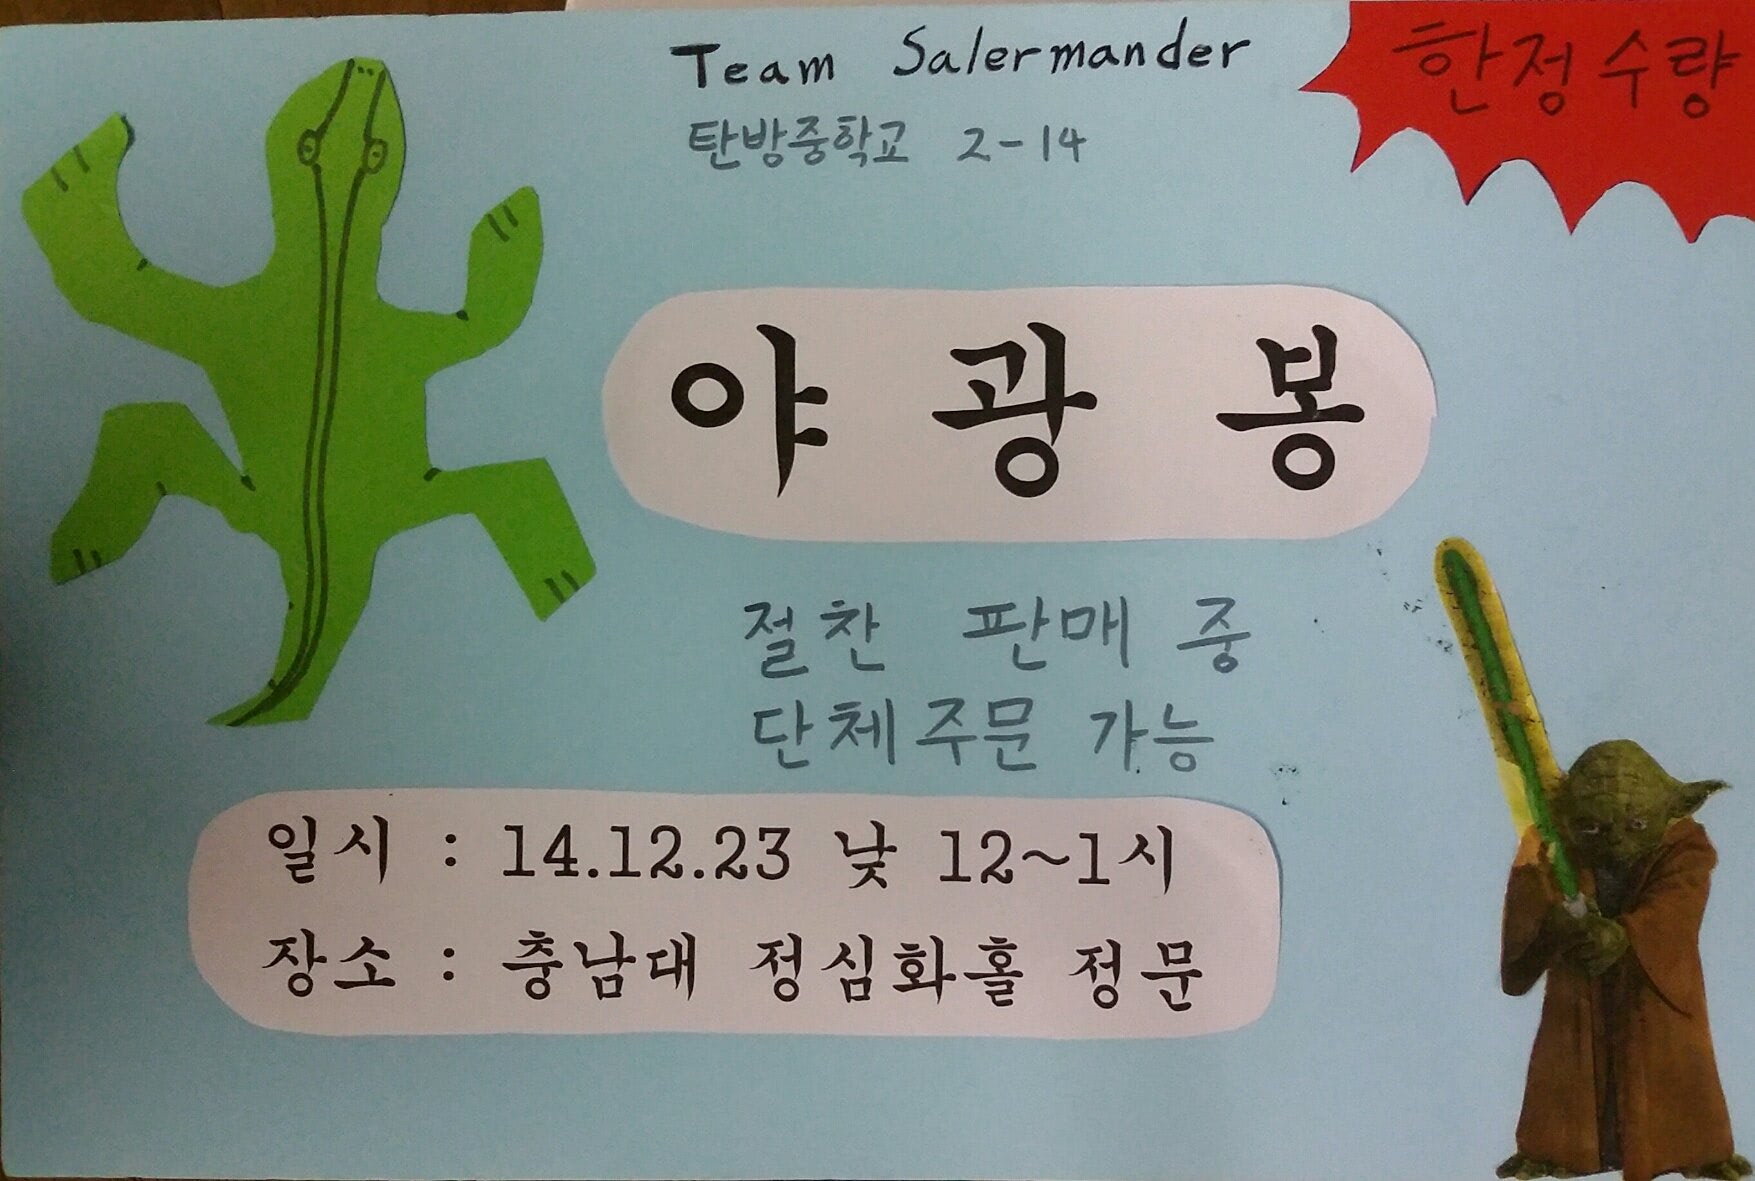 Team Salermander
탄방중학교 2-14
한정수량
야광봉
절찬 판매 중
단체주문 가능
일시 : 14.12.23 낮 12~1시
장소 : 충남대 정심화홀 정문